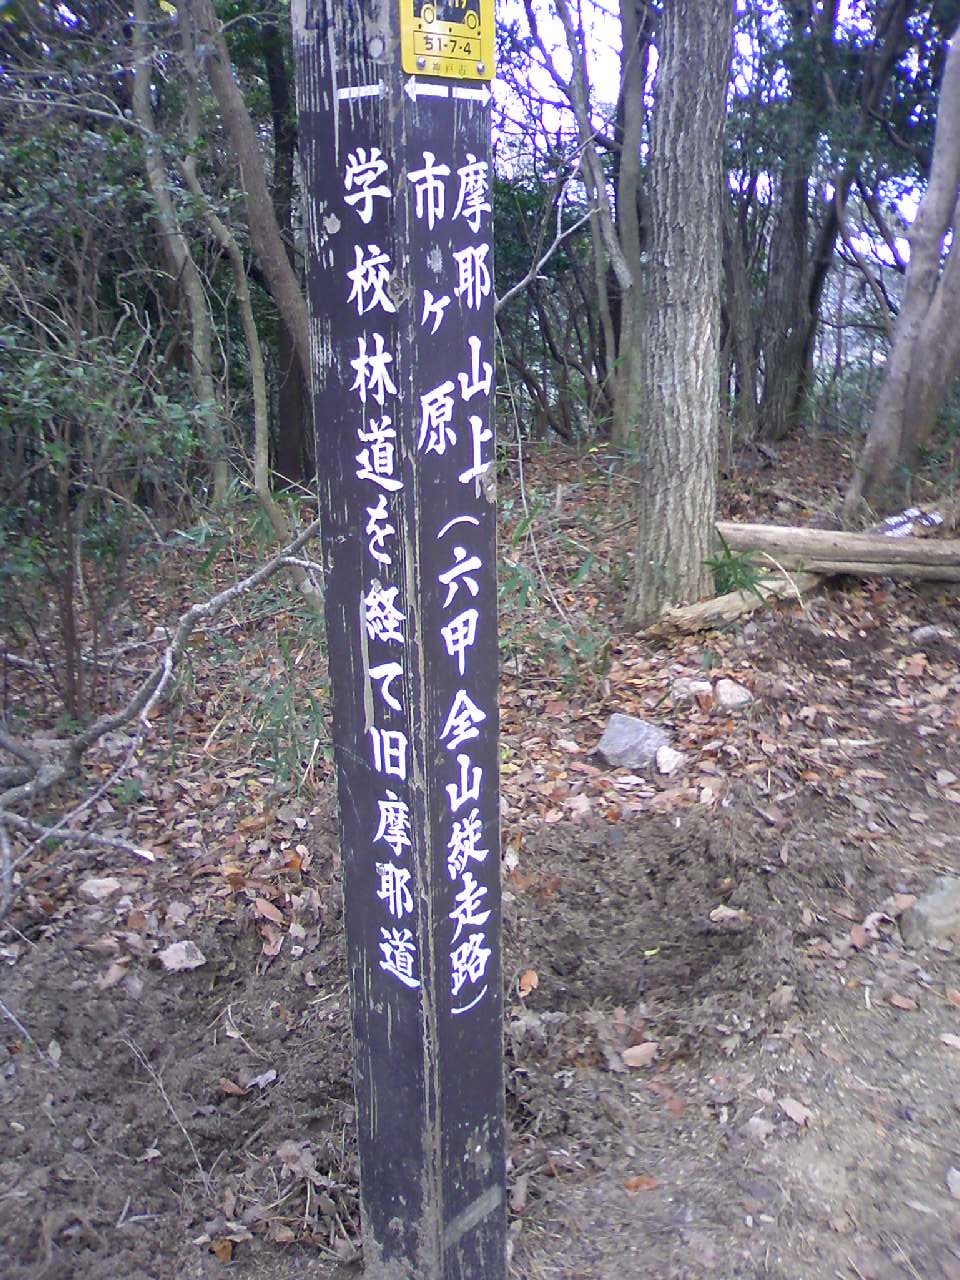 119
ち1-7-4
神戸市
摩耶山上(六甲全山縦走路)
市ヶ原
学校林道を経て旧摩耶道